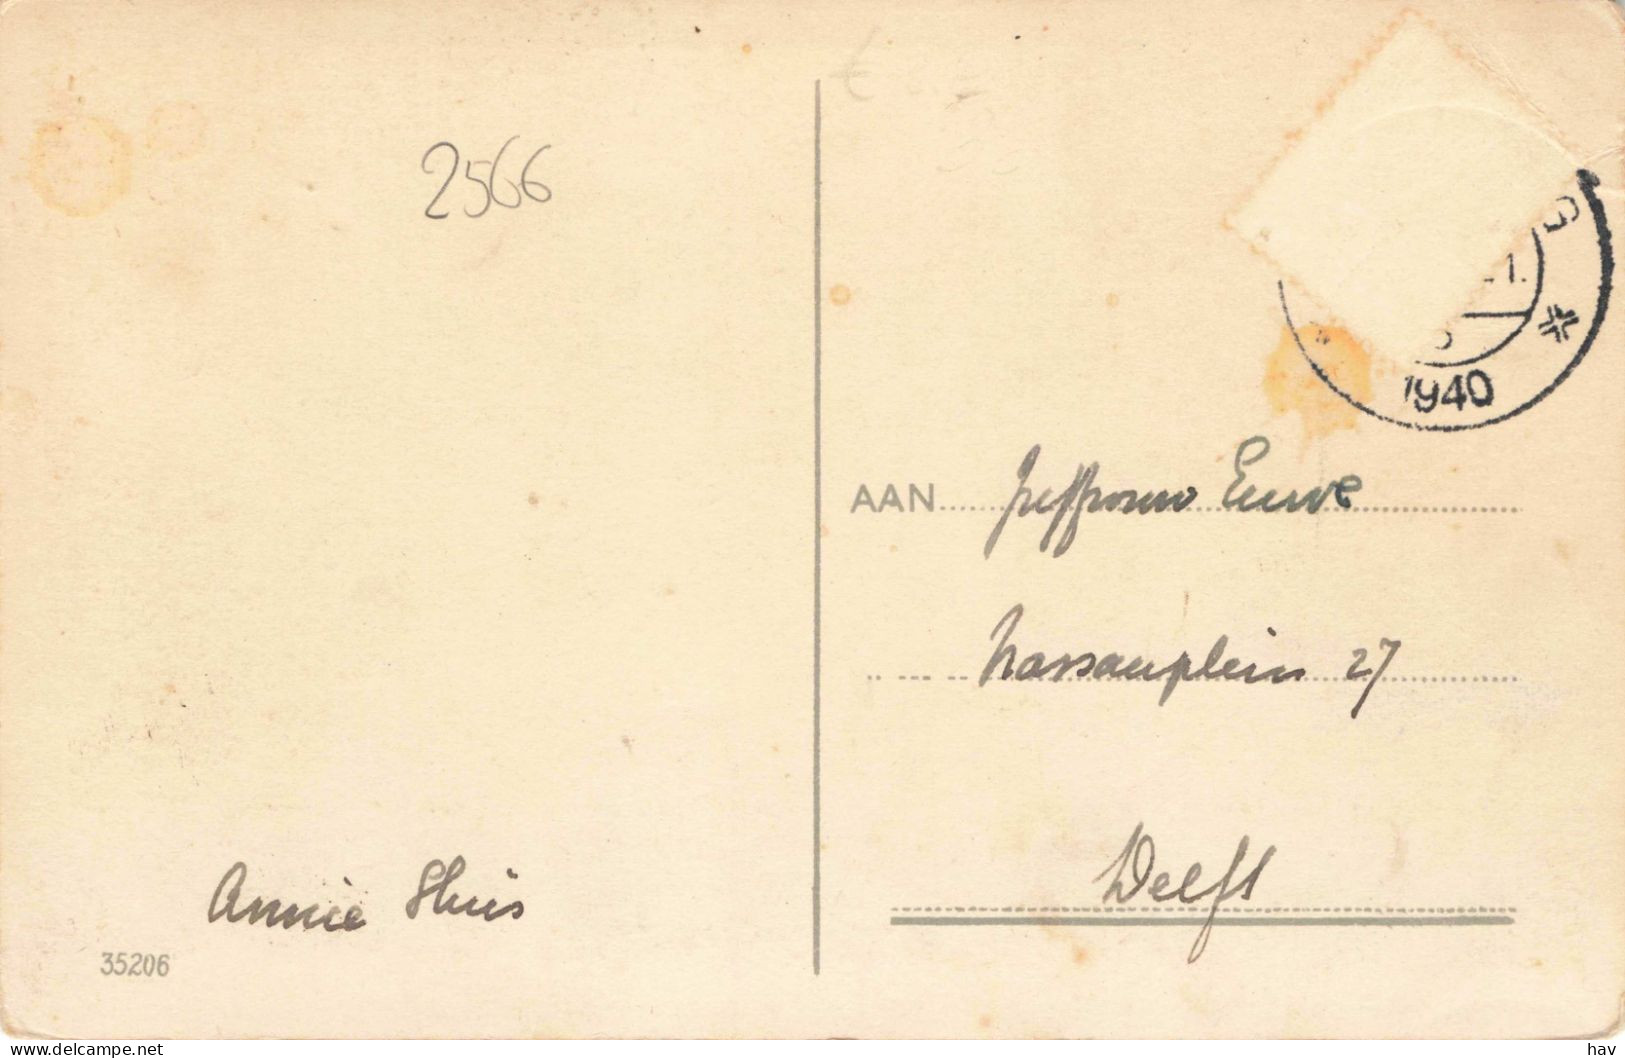 2566
G
1.
1940
AAN Juffrouw Euwe
Nassauplein 27
Delft
Annie Sluis
35206
www.delcampe.net
hav